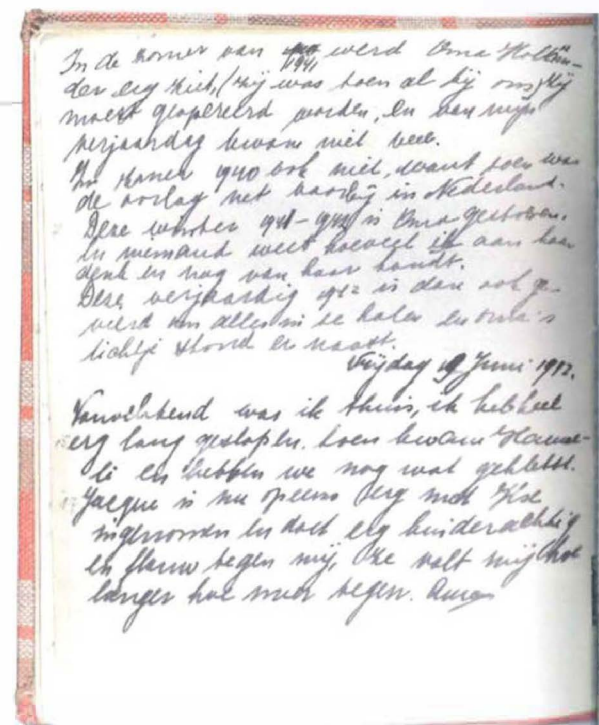 In de zomer van 1941 werd Oma Hollän-
der erg ziek, (zij was toen al bij ons) zij
moest geopereerd worden, en van mijn
verjaardag kwam niet veel.
In zomer 1940 ook niet, want toen was
de oorlog net voorbij in Nederland.
Deze winter 1941-1942 is Oma gestorven.
En niemand weet hoeveel ik aan haar
denk en nog van haar houdt.
Deze verjaardag 1942 is dan ook ge-
vierd om alles in te halen en oma's
lichtje stond er naast.
Vrijdag 19 Juni 1942.
Vanochtend was ik thuis, ik heb heel
erg lang geslapen. toen kwam Hanne-
li en hebben we nog wat gekletst.
Jacque is nu opeens erg met Ilse
ingenomen en doet erg kinderachtig
en flauw tegen mij, ze valt mij hoe
langer hoe meer tegen.